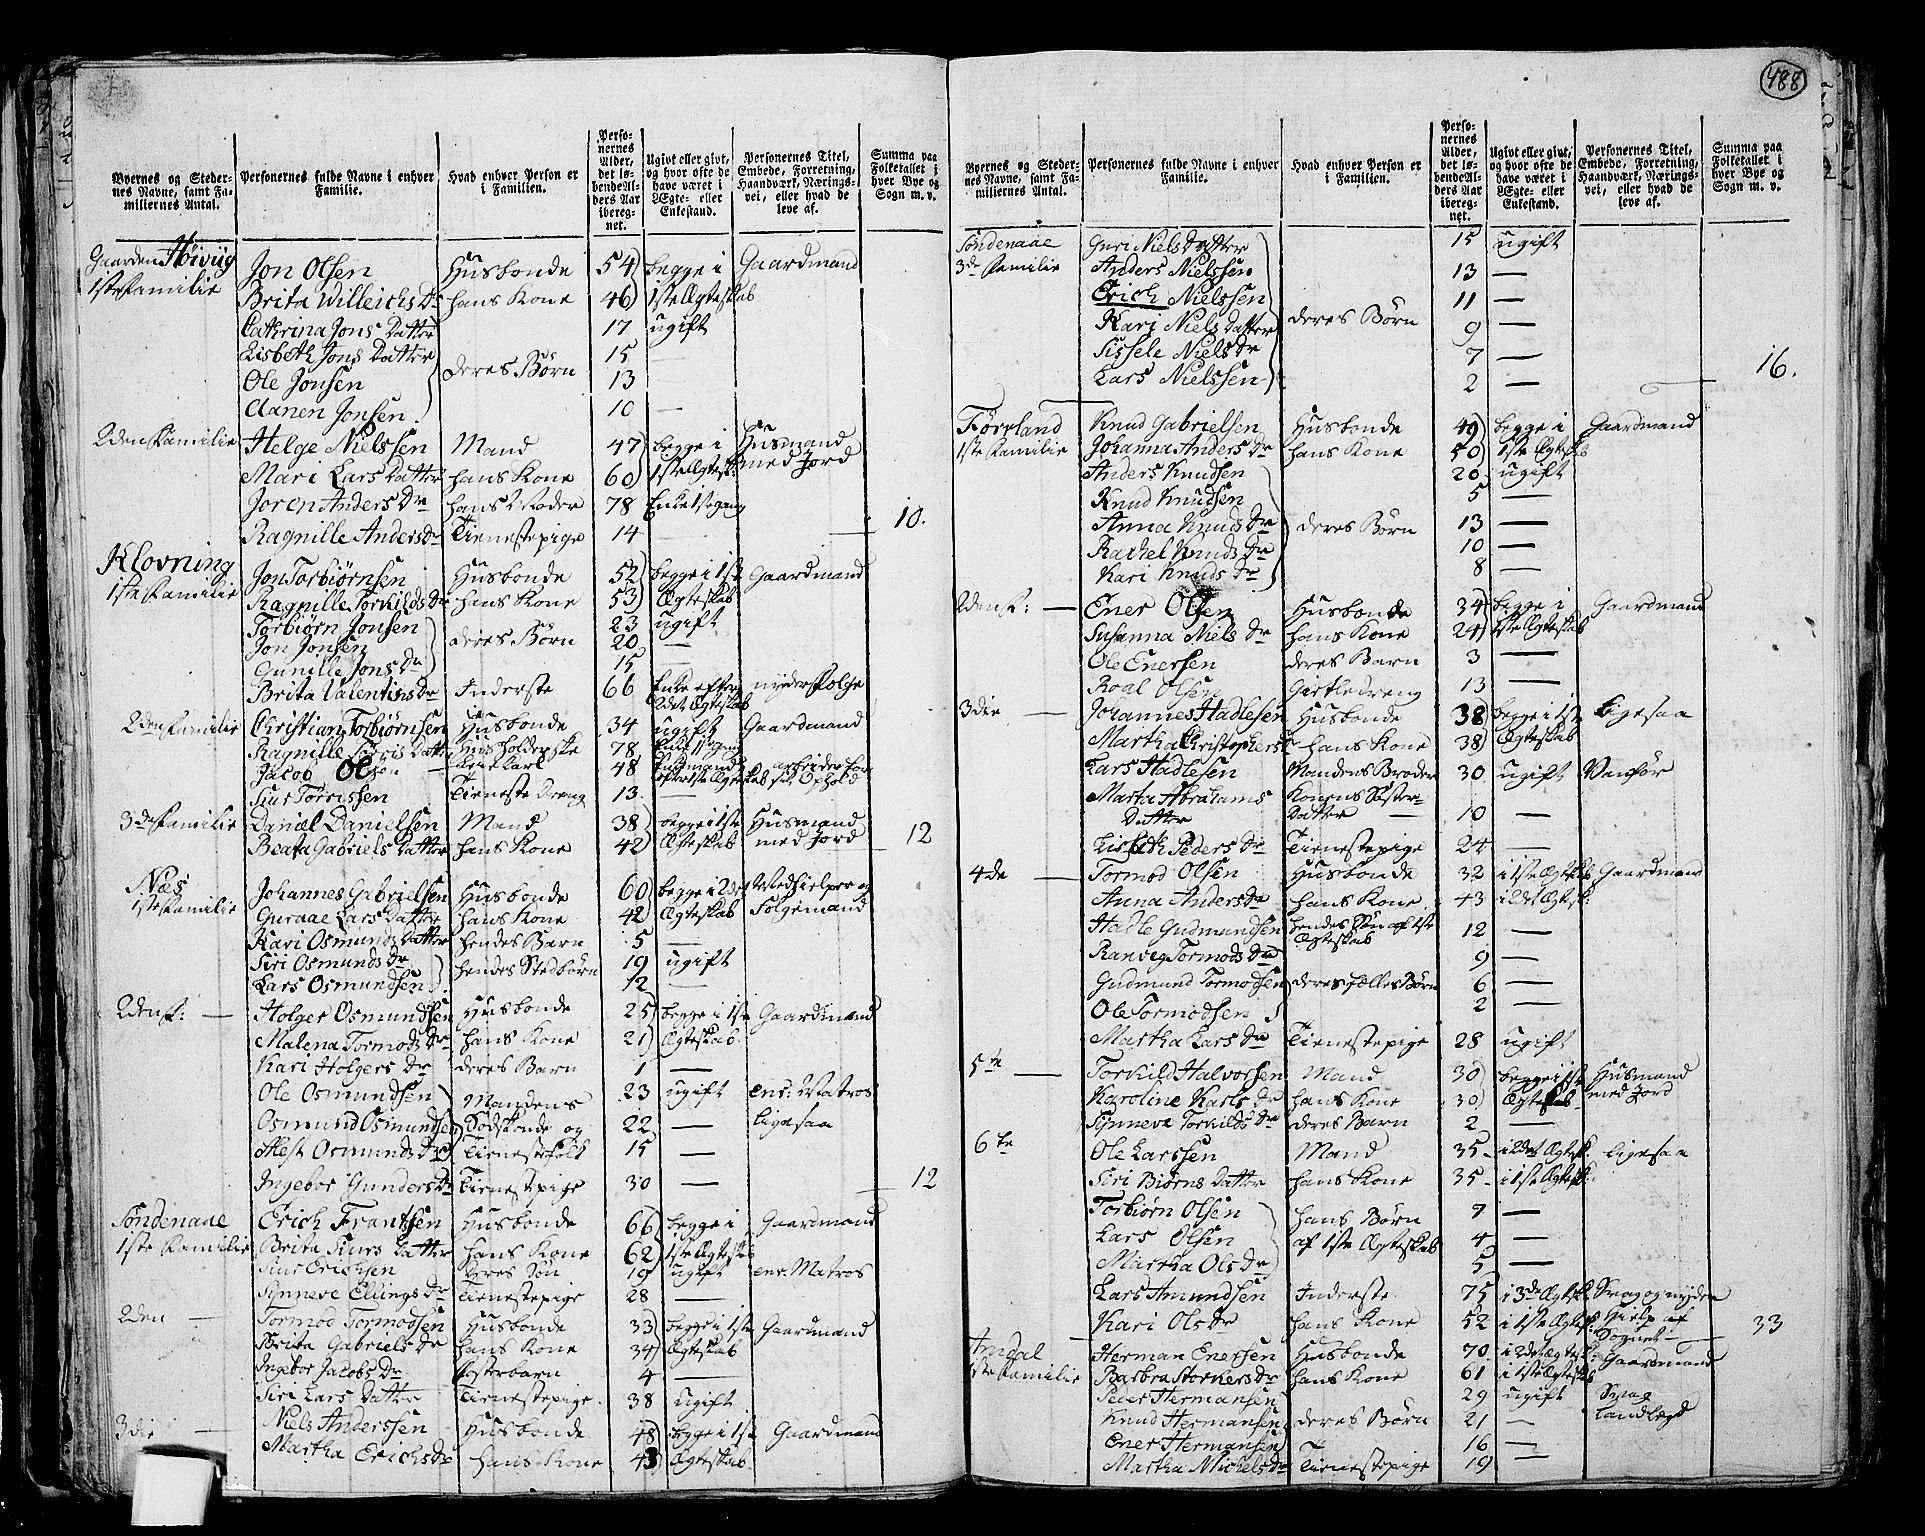 488
Byernes og Steder-
nes Navne, samt Fa-
miliernes Antal.
Personernes fulde Navne i enhver
Familie.
Hvad enhver Person er
i Familien.
Perso-
nernes
Alder,
det lø-
bende Al-
ders Aar
ibereg-
net.
Ugivt eller givt,
og hvor ofte de
have været i
Ægte- eller
Enkestand.
Personernes Titel,
Embede, Forretning,
Haandværk, Nærings-
vei, eller hvad de
leve af.
Summa paa
Folketallet i
hver Bye og
Sogn m. v.
Gaarden Høiviig Jon Olsen Husbonde 54 begge i Gaardmand
1ste Familie Brita Willeichs Dr hans Kone 46 1ste Ægteskab
Cathrina Jons Datter 17 ugift
Lisbeth Jons Datter 15 —
Ole Jonsen deres Børn 13
Aanen Jonsen 10 —
2den Familie Helge Nielssen Mand 47 begge i Huusmand
Mari Lars Datter hans Kone 60 1ste Ægtesk: med Jord
Joren Anders Dr hans Moder 78 Enke 1ste gang
Ragnille Anders Dr Tienestepige 14 — 10.
Klovning Jon Torbiørnsen Husbonde 52 begge i 1ste Gaardmand
1ste Familie Ragnille Torkilds Dr hans Kone 53 Ægteskab
Torbiørn Jonsen 23 ugift
Jon Jonsen deres Børn 20 —
Gunille Jons Dr 15
Brita Valentins Dr Inderste 66 Enke efter nyder Folge
2det Ægteskab
2den Familie Christian Torbiørnsen Husbonde 34 ugift Gaardmand
Ragnille Datter Huusholderske 78 Enke 1ste gang
Jacob Olsen 48 Enkemand arbeider for
efter 1ste Ægteskab sit Ophold
Siur Torrissen Tieneste Dreng 13 —
3die Familie Daniel Danielsen Mand 38 begge i 1ste Huusmand
Beata Gabriels Datter hans Kone 42 Ægteskab med Jord 12
Næs Johannes Gabrielsen Husbonde 60 begge i 2det Medhielper og
1ste Familie Guraae Lars Datter hans Kone 42 Ægteskab Folgemand
Kari Osmunds Datter hendes Barn 5 —
Siri Osmunds Dr hendes Stedbørn 19 ugift
Lars Osmundsen 12 —
2den F: — Holger Osmundsen Husbonde 25 begge i 1ste Gaardmand
Malena Tormods Dr hans Kone 21 Ægteskab
Kari Holgers Dr deres Barn 1 —
Ole Osmundsen Mandens 23 ugift enr: Matros
Osmund Osmundsen Sødskende og 22 — ligesaa
Alest Osmunds Dr Tienestefolk 15 —
Ingebor Gunders Dr Tienestepige 30 — 12
Søndenaae Erich Frantsen Husbonde 66 begge i Gaardmand
1ste Familie Brita Siurs Datter hans Kone 62 1ste Ægteskab
Siur Erichsen deres Søn 19 ugift enr: Matros
Synneve Ellings Dr Tienestepige 28 —
2den — Tormod Tormodsen Husbonde 33 begge i 1ste Gaardmand
Brita Gabriels Dr hans Kone 34 Ægteskab
Ingebor Jacobs Dr Fosterbarn 4 —
Siri Lars Datter Tienestepige 38 ugift
3die — Niels Anderssen Husbonde 48 begge i 1ste Gaardmand
Martha Erichs Dr hans Kone 43 Ægteskab
Byernes og Steder-
nes Navne, samt Fa-
miliernes Antal.
Personernes fulde Navne i enhver
Familie.
Hvad enhver Person er
i Familien.
Perso-
nernes
Alder,
det lø-
bende Al-
ders Aar
ibereg-
net.
Ugivt eller givt,
og hvor ofte de
have været i
Ægte- eller
Enkestand.
Personernes Titel,
Embede, Forretning,
Haandværk, Nærings-
vei, eller hvad de
leve af.
Summa paa
Folketallet i
hver Bye og
Sogn m. v.
Søndenaae Guri Niels Datter 15 ugift
3die Familie Anders Nielssen 13 —
Erich Nielssen 11 —
Kari Niels Datter deres Børn 9 —
Sissele Niels Dr 7 —
Lars Nielssen 2 — 16.
Førreland Knud Gabrielsen Husbonde 49 begge i Gaardmand
1ste Familie Johanna Anders Dr hans Kone 50 1ste Ægteskab
Anders Knudsen 20 ugift
Knud Knudsen 5 —
Anna Knuds Dr deres Børn 13 —
Rachel Knuds Dr 10 —
Kari Knuds Dr 8 —
2den F: — Ener Olsen Husbonde 34 begge i Gaardmand
Susanna Niels Dr hans Kone 24 1ste Ægteskab
Ole Enersen deres Barn 3 —
Roal Olsen Giætledreng 13 —
3die — Johannes Hadlesen Husbonde 38 begge i 1ste Ligesaa
Martha Christophers Dr hans Kone 38 Ægteskab
Lars Hadlesen Mandens Broder 30 ugift Vanfør
Marta Abrahams Konens Søster-
Datter Datter — 10 —
Lisbeth Peders Dr Tienestepige 24 —
4de — Tormod Olsen Husbonde 32 i 1ste Ægtesk: Gaardmand
Anna Anders Dr hans Kone 43 i 2det Ægtesk:
Hadle Gudmundsen hendes Søn af 1ste
Ægteskab 12 —
Ranveg Tormods Dr 9 —
Gudmund Tormodsen deres fælles Børn 6 —
Ole Tormodsen 2 —
Martha Lars Dr Tienestepige 28 ugift
5te — Torkild Halvorsen Mand 30 begge i 1ste Huusmand
Karoline Karls Dr hans Kone 30 Ægteskab med Jord
Synneve Torkilds Dr deres Barn 2 —
6te Ole Larssen Mand 35 i 2det Ægtesk: ligesaa
Siri Biørns Datter hans Kone 35 i 1ste Ægtesk:
Torbiørn Olsen hans Børn 7 —
Lars Olsen af 1ste Ægteskab 4 —
Martha Ols Dr 5 —
Lars Amundsen Inderste 75 i 3die Ægtesk: Svag og nyder
Kari Ols Dr hans Kone 52 i 1ste Ægtesk: Hielp af
Sognet — 33
Amdal Herman Enersen Husbonde 70 i 2det Ægtesk: Gaardmand
1ste Familie Barbra Storkers Dr hans Kone 61 i 1ste Ægteskab
Peder Hermansen 29 ugift Svag
Knud Hermansen deres Børn 21 — Landlægd
Ener Hermansen 16 —
Martha Michels Dr Tienestepige 19 —